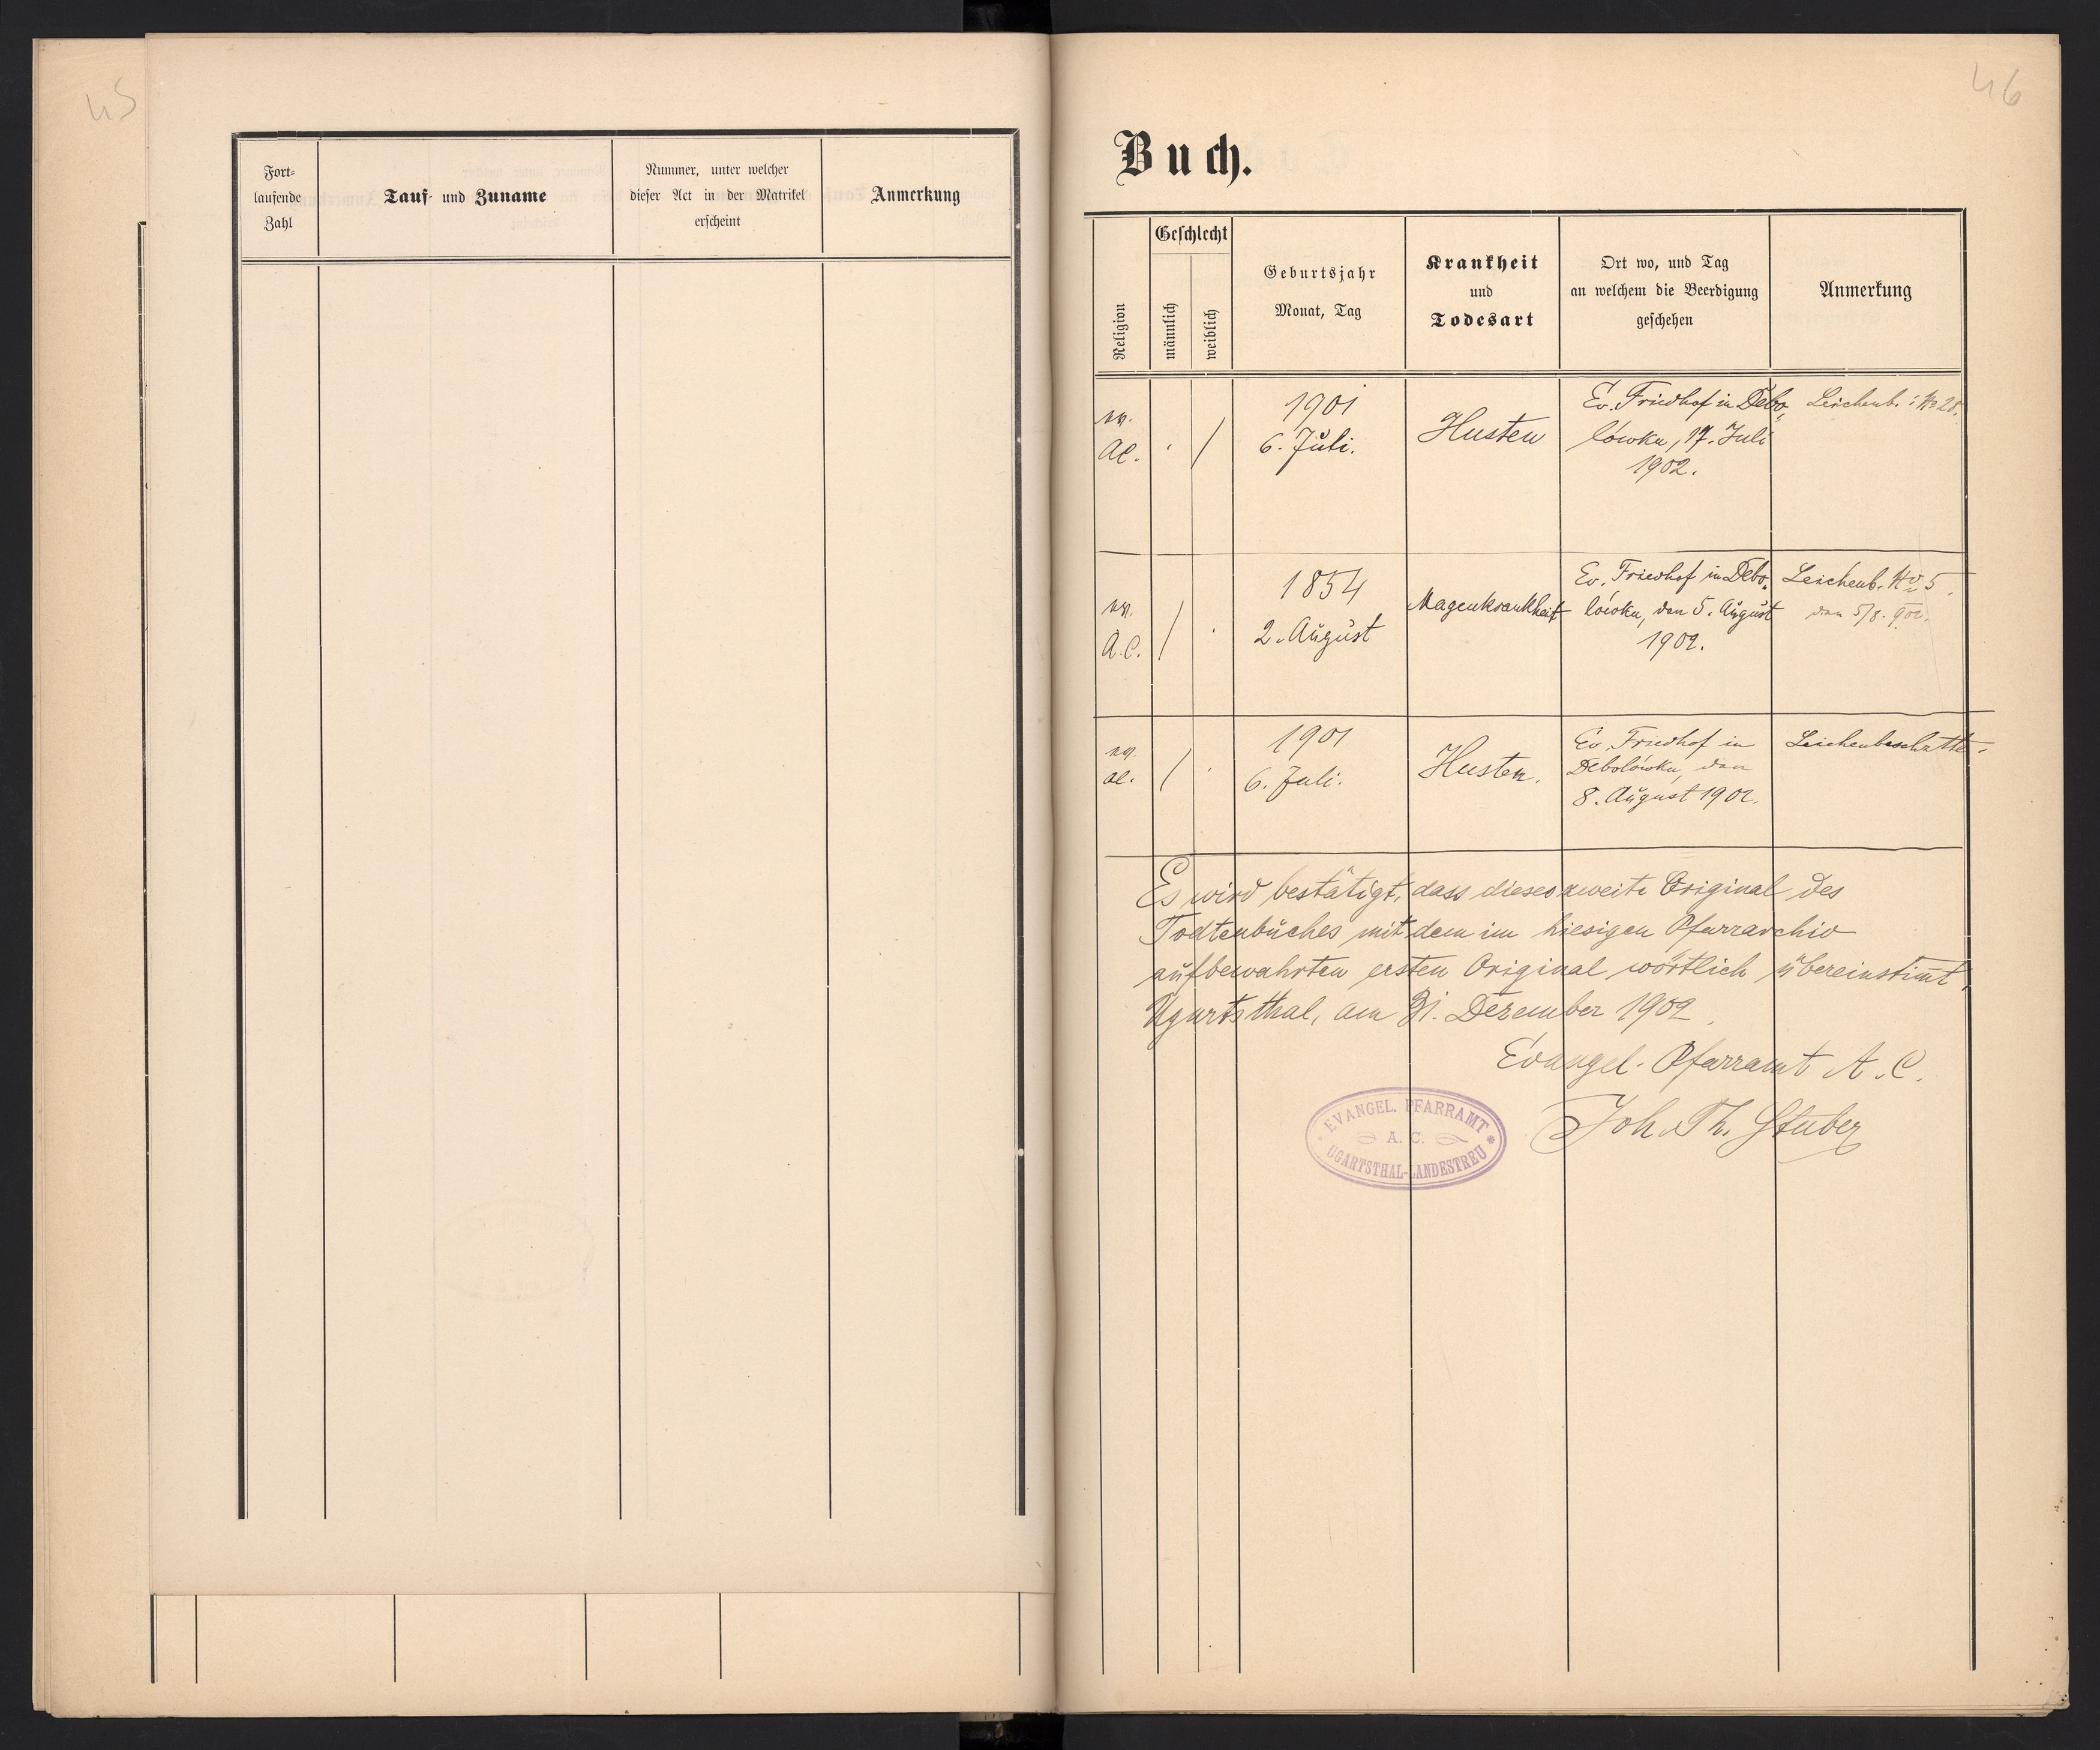 45
Fort-
laufende
Zahl
Tauf- und Zuname
Nummer, unter welcher
dieser Act in der Matrikel
erscheint
Anmerkung
46
Buch.
Religion
Geschlecht
männlich
weiblich
Geburtsjahr
Monat, Tag
Krankheit
und
Todesart
Ort wo, und Tag
an welchem die Beerdigung
geschehen
Anmerkung
ev.
AC.
1901
6. Juli.
Husten
Ev. Friedhof in Debo-
lówka, 17. Juli
1902.
Leichenb.
ev.
A.C.
1854
2. August
Magenkrankheit
Ev. Friedhof in Debo-
lówka, den 5. August
1902.
Leichenb. No 5
den 5/8. 902.
ev.
AC.
1901
6. Juli.
Husten.
Ev. Friedhof in
Debolówka, den
8. August 1902.
Es wird bestätigt, dass dieses zweite Original des
Todtenbuches mit dem im hiesigen Pfarrarchiv
aufbewahrten ersten Original wörtlich übereinstimt.
Ugartsthal, am 31. Dezember 1902.
Evangel. Pfarramt A.C.
Joh. Th. Stuber
EVANGEL. PFARRAMT
A. C.
UGARTSTHAL-LANDESTREU